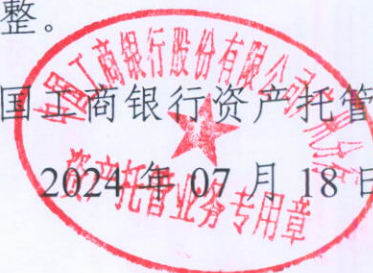 整。
国工商银行资产托管
2024 年 07 月 18 日
中国工商银行股份有限公司
资产托管业务专用章